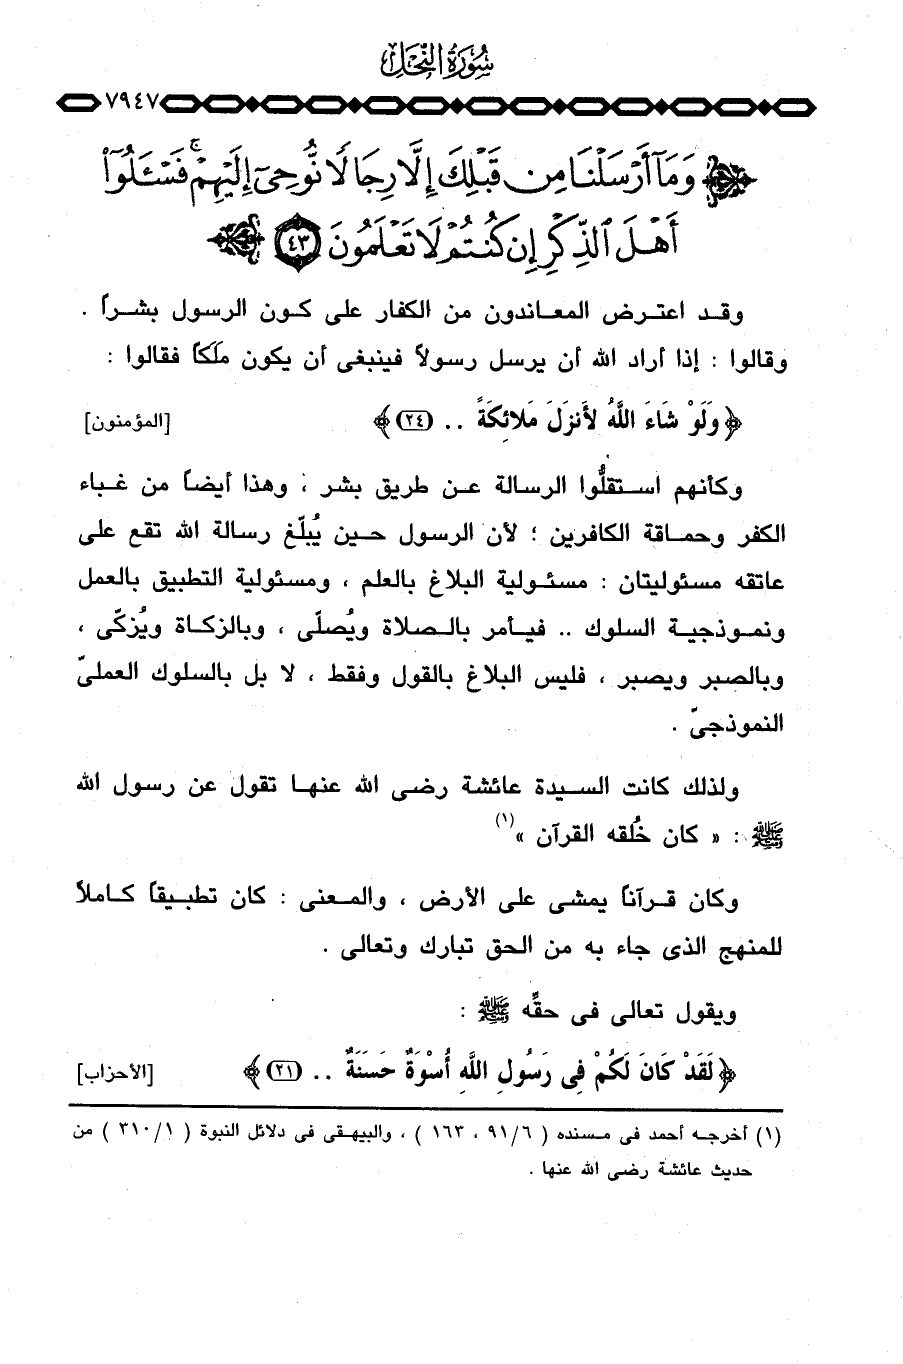 سُورَةُ النَّحْلِ
٧٩٤٧
وَمَآ أَرْسَلْنَا مِن قَبْلِكَ إِلَّا رِجَالًا نُّوحِىٓ إِلَيْهِمْ ۚ فَسْـَٔلُوٓا۟
أَهْلَ ٱلذِّكْرِ إِن كُنتُمْ لَا تَعْلَمُونَ ٤٣
وقد اعترض المعاندون من الكفار على كون الرسول بشراً .
وقالوا : إذا أراد الله أن يرسل رسولاً فينبغى أن يكون مَلَكاً فقالوا :
﴿ وَلَوْ شَاءَ اللَّهُ لأَنزَلَ مَلائِكَةً .. (٢٤) ﴾ [المؤمنون]
وكأنهم استقلُّوا الرسالة عن طريق بشر ، وهذا أيضاً من غباء
الكفر وحماقة الكافرين ؛ لأن الرسول حين يُبلّغ رسالة الله تقع على
عاتقه مسئوليتان : مسئولية البلاغ بالعلم ، ومسئولية التطبيق بالعمل
ونموذجية السلوك .. فيأمر بالصلاة ويُصلّى ، وبالزكاة ويُزكّى ،
وبالصبر ويصبر ، فليس البلاغ بالقول وفقط ، لا بل بالسلوك العملىّ
النموذجىّ .
ولذلك كانت السيدة عائشة رضى الله عنها تقول عن رسول الله
ﷺ : « كان خُلقه القرآن »(١)
وكان قرآناً يمشى على الأرض ، والمعنى : كان تطبيقاً كاملاً
للمنهج الذى جاء به من الحق تبارك وتعالى .
ويقول تعالى فى حقِّه ﷺ :
﴿ لَقَدْ كَانَ لَكُمْ فِى رَسُولِ اللَّهِ أُسْوَةٌ حَسَنَةٌ .. (٢١) ﴾ [الأحزاب]
(١) أخرجه أحمد فى مسنده ( ٩١/٦ ، ١٦٣ ) ، والبيهقى فى دلائل النبوة ( ٣١٠/١ ) من
حديث عائشة رضى الله عنها .